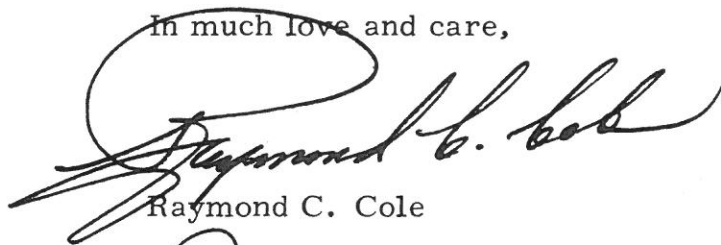 In much love and care,
Raymond C. Cole
Raymond C. Cole